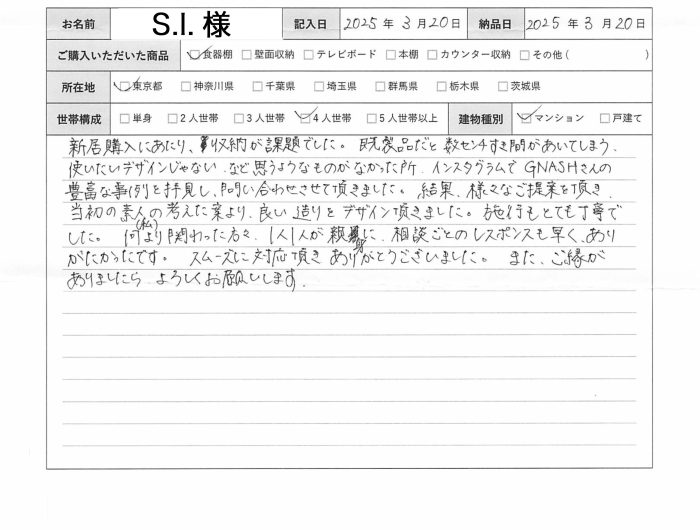 お名前 S.I. 様 記入日 2025 年 3 月 20 日 納品日 2025 年 3 月 20 日
ご購入いただいた商品 ☑食器棚 □壁面収納 □テレビボード □本棚 □カウンター収納 □その他 ( )
所在地 ☑東京都 □神奈川県 □千葉県 □埼玉県 □群馬県 □栃木県 □茨城県
世帯構成 □単身 □2人世帯 □3人世帯 ☑4人世帯 □5人世帯以上 建物種別 ☑マンション □戸建て
新居購入にあたり、収納が課題でした。既製品だと数センチすき間があいてしまう、
使いたいデザインじゃない、など思うようなものがなかった所、インスタグラムでGNASHさんの
豊富な事例を拝見し、問い合わせさせて頂きました。結果、様々なご提案を頂き、
当初の素人(私)の考えた案より、良い造りとデザイン頂きました。施行もとても丁寧で
した。何より関わった方々、1人1人が親身に、相談ごとのレスポンスも早く、あり
がたかったです。スムーズに対応頂きありがとうございました。また、ご縁が
ありましたらよろしくお願いします。